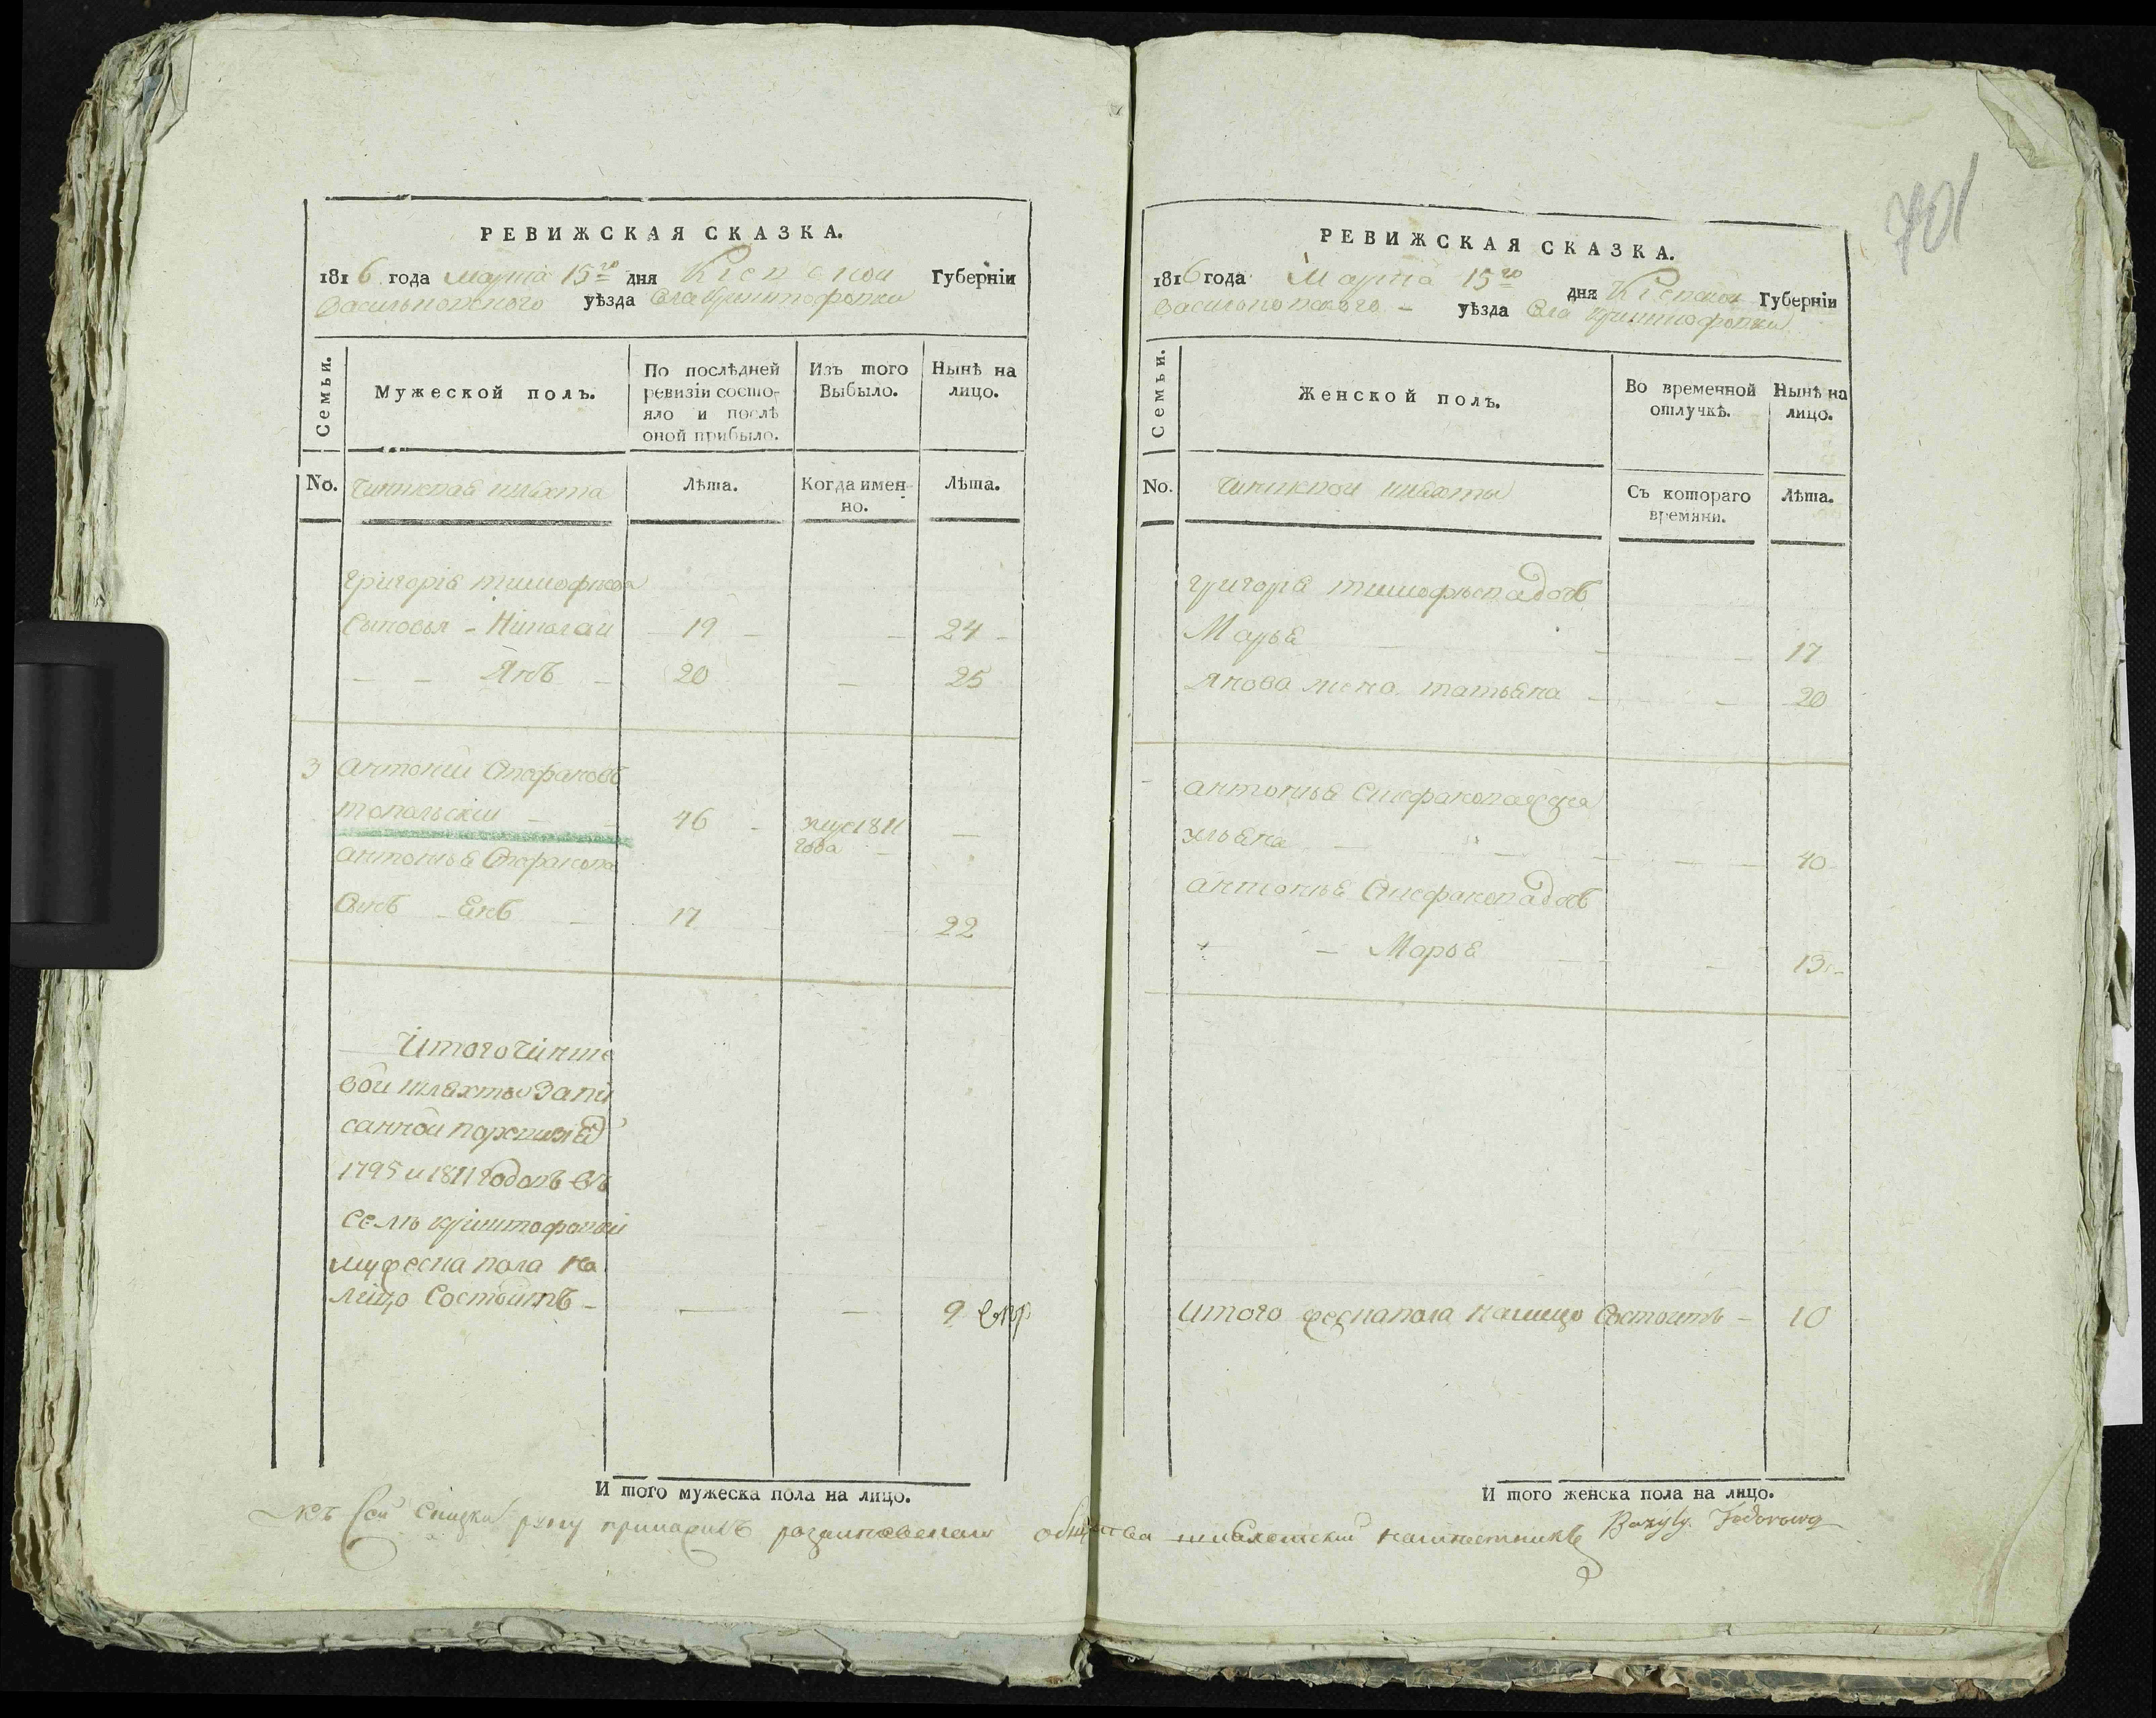 701
РЕВИЖСКАЯ СКАЗКА.
1816 года марта 15го дня Киевской Губерніи
Васильковского уѣзда Села Криштофовки
Семьи.
Мужеской полъ.
По послѣдней ревизіи состояло и послѣ оной прибыло.
Изъ того Выбыло.
Нынѣ на лицо.
No. Чиншовая шляхта Лѣта. Когда именно. Лѣта.
Григорія тимофѣева
Сыновья - Николай 19 - - 24 -
- - Янъ - 20 - 25
3 Антоній Стефановъ
топольскій - - 46 - 1811 года -
Антонія Стефанова
Сынъ - Янъ - 17 22
Итого Чинше
вой шляхты Запи
санной по ревизія
1795 и 1811 годовъ въ
Селѣ криштофовки
мужеска пола на
лицо Состоитъ - - - 9
И того мужеска пола на лицо.
РЕВИЖСКАЯ СКАЗКА.
1816 года Марта 15го дня Киевской Губерніи
Васильковского - уѣзда Села Криштофовки
Семьи.
Женской полъ.
Во временной отлучкѣ.
Нынѣ на лицо.
No. Чиншовой шляхты Съ котораго времяни. Лѣта.
Григорія тимофѣева дочь
Марья - - - 17
Янова жена татьяна - - 20
Антонія Стефанова жена
- - - - - 40
Антонія Стефанова дочь
- - Марья - - - 13 -
Итого женска пола налицо Состоитъ - 10
И того женска пола на лицо.
Къ сей Сказки руку приложилъ общества шляхетский намѣстникъ Bazyly Fedorowicz